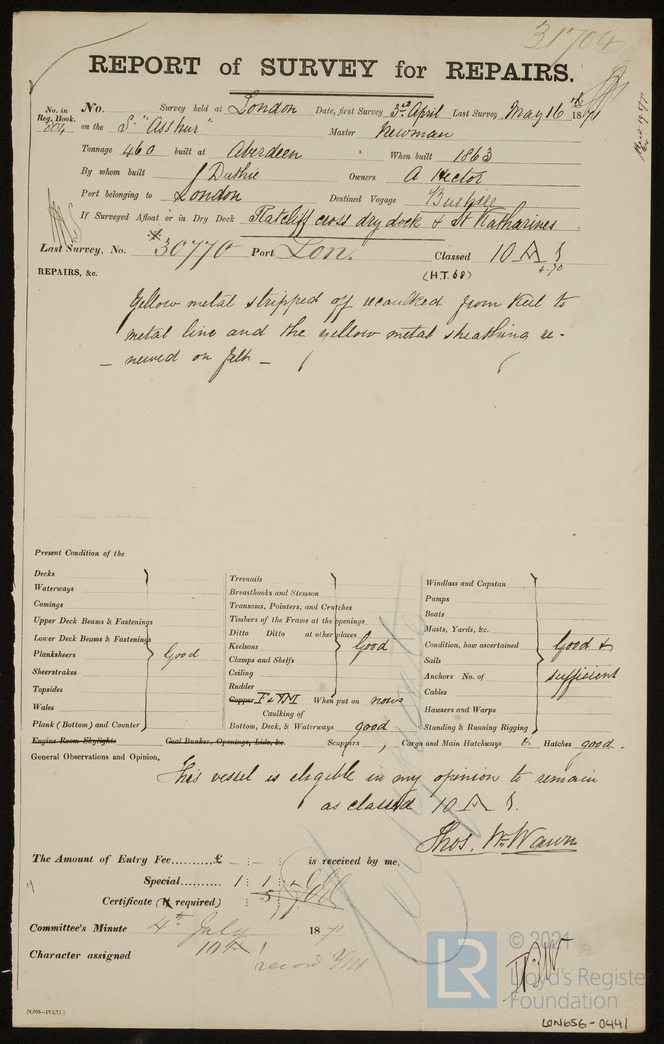 31704
REPORT of SURVEY for REPAIRS.
No. in Reg. Book. No. Survey held at London Date, first Survey 3rd April Last Survey May 16th 1871
804 on the S. "Asshur" Master Newman
Tonnage 460 built at Aberdeen When built 1863
By whom built J Duthie Owners A Hector
Port belonging to London Destined Voyage Bushire
If Surveyed Afloat or in Dry Dock Ratcliff cross dry dock & St Katharines
Last Survey, No. 30770 Port Lon. Classed 10 A 1
4-70
(H.T. 68)
REPAIRS, &c.
Yellow metal stripped off recaulked from keel to
metal line and the yellow metal sheathing re-
- newed on felt -
Present Condition of the
Decks
Waterways
Comings
Upper Deck Beams & Fastenings
Lower Deck Beams & Fastenings
Planksheers Good
Sheerstrakes
Topsides
Wales
Plank (Bottom) and Counter
Treenails
Breasthooks and Stemson
Transoms, Pointers, and Crutches
Timbers of the Frame at the openings
Ditto Ditto at other places
Keelsons Good
Clamps and Shelfs
Ceiling
Rudder
Copper F & YM When put on now
Caulking of
Bottom, Deck, & Waterways good
Windlass and Capstan
Pumps
Boats
Masts, Yards, &c.
Condition, how ascertained Good &
Sails
Anchors No. of sufficient
Cables
Hawsers and Warps
Standing & Running Rigging
Engine Room Skylights Coal Bunker, Openings, Lids, &c. Scuppers, Cargo and Main Hatchways & Hatches good -
General Observations and Opinion,
This vessel is eligible in my opinion to remain
as classed 10 A 1.
Thos. Wm Wawn
The Amount of Entry Fee.........£ - : - : is received by me,
Special......... 1 : 1 : -
Certificate (if required) : 5 :
Committee's Minute 4th July 1871
Character assigned 10 A 1
record YM
[4,000—19/2/71.]
© 2021
LR
Lloyd's Register
Foundation
LON656-0441